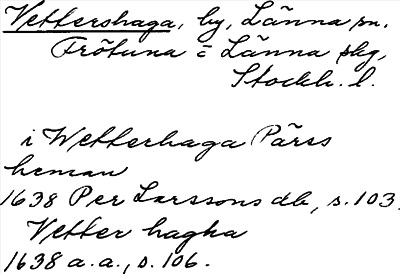 Vettershaga, by, Länna sn.
Frötuna o Länna skg,
Stockh. l.
i Wetterhaga Pärss
heman
1638 Per Larssons db, s. 103.
Vetter hagha
1638 a.a., s. 106.